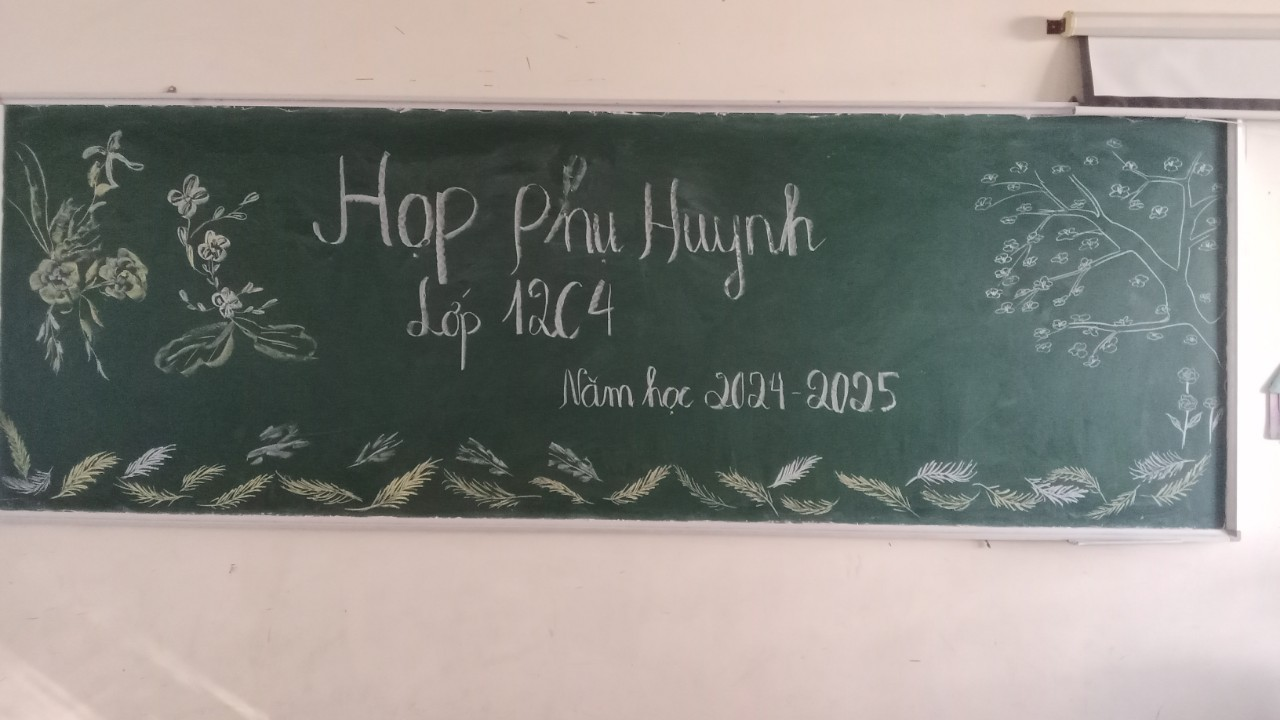 Họp Phụ Huynh
Lớp 12C4
Năm học 2024-2025